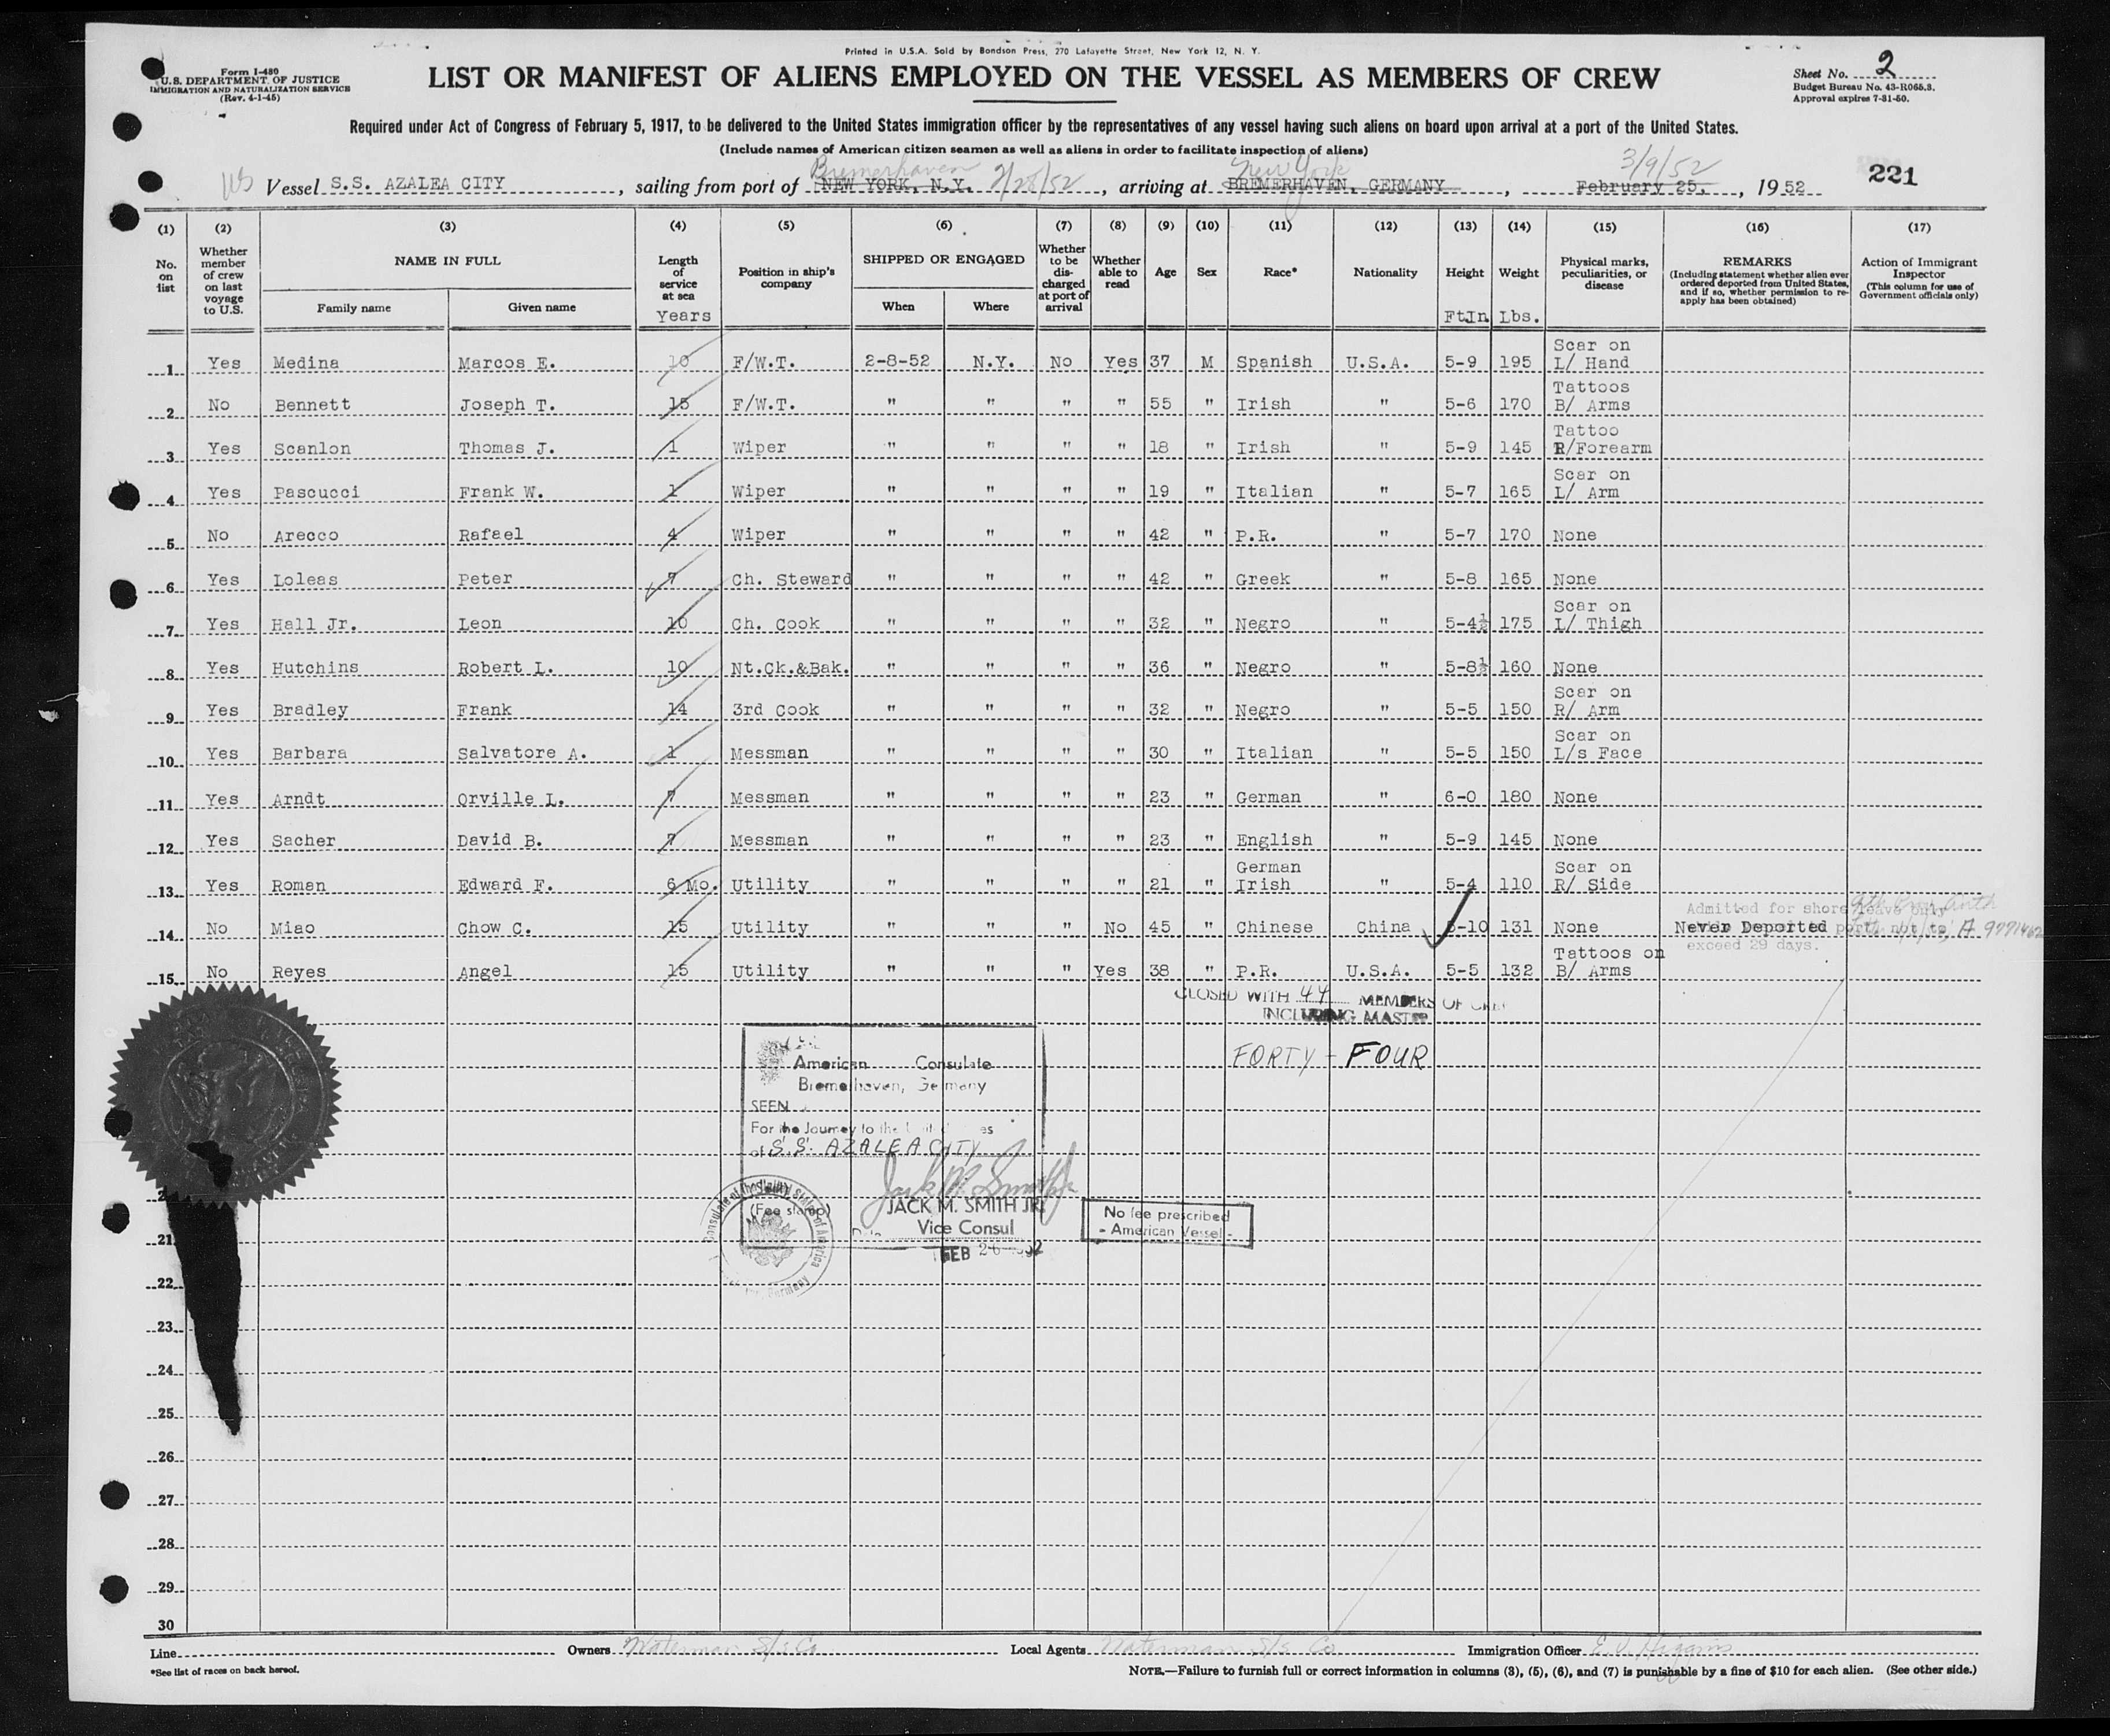 Printed in U.S.A. Sold by Bondson Press, 270 Lafayette Street, New York 12, N. Y.
Form I-480
U.S. DEPARTMENT OF JUSTICE
IMMIGRATION AND NATURALIZATION SERVICE
(Rev. 4-1-45)
LIST OR MANIFEST OF ALIENS EMPLOYED ON THE VESSEL AS MEMBERS OF CREW
Sheet No. 2
Budget Bureau No. 43-R065.3.
Approval expires 7-31-50.
Required under Act of Congress of February 5, 1917, to be delivered to the United States immigration officer by the representatives of any vessel having such aliens on board upon arrival at a port of the United States.
(Include names of American citizen seamen as well as aliens in order to facilitate inspection of aliens)
Bremerhaven New York 3/9/52
Vessel S.S. AZALEA CITY, sailing from port of NEW YORK, N.Y. 2/28/52, arriving at BREMERHAVEN, GERMANY, February 25, 1952 221
(1) (2) (3) (4) (5) (6) (7) (8) (9) (10) (11) (12) (13) (14) (15) (16) (17)
No. on list
Whether member of crew on last voyage to U.S.
NAME IN FULL
Family name Given name
Length of service at sea
Years
Position in ship's company
SHIPPED OR ENGAGED
When Where
Whether to be discharged at port of arrival
Whether able to read
Age
Sex
Race*
Nationality
Height
Ft In
Weight
Lbs.
Physical marks, peculiarities, or disease
REMARKS
(Including statement whether alien ever ordered deported from United States, and if so, whether permission to reapply has been obtained)
Action of Immigrant Inspector
(This column for use of Government officials only)
1 Yes Medina Marcos E. 10 F/W.T. 2-8-52 N.Y. No Yes 37 M Spanish U.S.A. 5-9 195 Scar on L/ Hand
2 No Bennett Joseph T. 15 F/W.T. " " " " 55 " Irish " 5-6 170 Tattoos B/ Arms
3 Yes Scanlon Thomas J. 1 Wiper " " " " 18 " Irish " 5-9 145 Tattoo R/Forearm
4 Yes Pascucci Frank W. 1 Wiper " " " " 19 " Italian " 5-7 165 Scar on L/ Arm
5 No Arecco Rafael 4 Wiper " " " " 42 " P.R. " 5-7 170 None
6 Yes Loleas Peter 7 Ch. Steward " " " " 42 " Greek " 5-8 165 None
7 Yes Hall Jr. Leon 10 Ch. Cook " " " " 32 " Negro " 5-4½ 175 Scar on L/ Thigh
8 Yes Hutchins Robert L. 10 Nt.Ck.&Bak. " " " " 36 " Negro " 5-8½ 160 None
9 Yes Bradley Frank 14 3rd Cook " " " " 32 " Negro " 5-5 150 Scar on R/ Arm
10 Yes Barbara Salvatore A. 1 Messman " " " " 30 " Italian " 5-5 150 Scar on L/s Face
11 Yes Arndt Orville L. 7 Messman " " " " 23 " German " 6-0 180 None
12 Yes Sacher David B. 7 Messman " " " " 23 " English " 5-9 145 None
13 Yes Roman Edward F. 6 Mo. Utility " " " " 21 " German Irish " 5-4 110 Scar on R/ Side
Admitted for shore leave only
14 No Miao Chow C. 15 Utility " " " No 45 " Chinese China 5-10 131 None Never Deported
exceed 29 days.
15 No Reyes Angel 15 Utility " " " Yes 38 " P.R. U.S.A. 5-5 132 Tattoos on B/ Arms
CLOSED WITH 44 MEMBERS OF CREW
INCLUDING MASTER
FORTY - FOUR
American Consulate
Bremerhaven, Germany
SEEN
For the Journey to the United States
of S.S. AZALEA CITY
Jack M. Smith Jr
(Fee stamp) JACK M. SMITH JR.
Vice Consul
Date FEB 26 1952
No fee prescribed
- American Vessel -
21
22
23
24
25
26
27
28
29
30
Line Owners Waterman S/S Co Local Agents Waterman S/S Co Immigration Officer E. J. Higgins
*See list of races on back hereof.
NOTE.—Failure to furnish full or correct information in columns (3), (5), (6), and (7) is punishable by a fine of $10 for each alien. (See other side.)